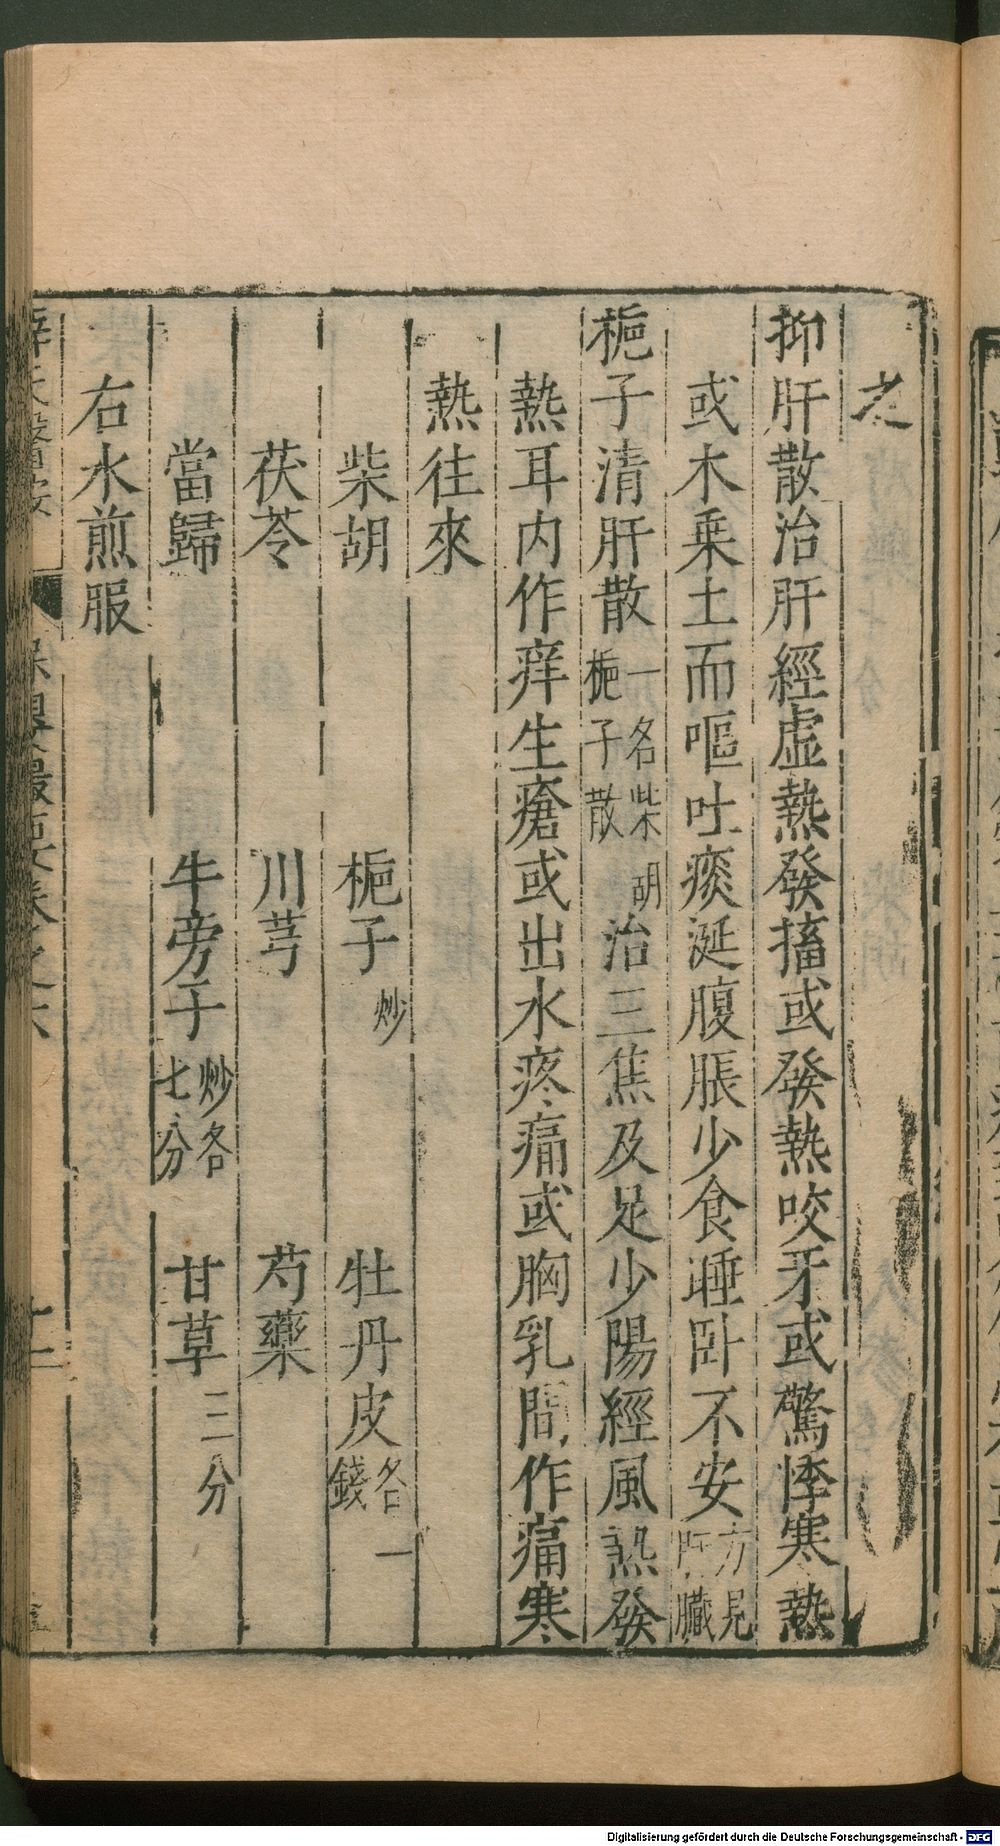 之
抑肝散治肝經虛熱發搐或發熱咬牙或驚悸寒熱
或木乘土而嘔吐痰涎腹脹少食睡臥不安方見肝臟
梔子清肝散一名柴胡梔子散治三焦及足少陽經風熱發
熱耳内作痒生瘡或出水疼痛或胸乳間作痛寒
熱往來
柴胡 梔子炒 牡丹皮各一錢
茯苓 川芎 芍藥
當歸 牛旁子炒各七分 甘草二分
右水煎服
保嬰撮要卷之六
Digitalisierung gefördert durch die Deutsche Forschungsgemeinschaft - DFG